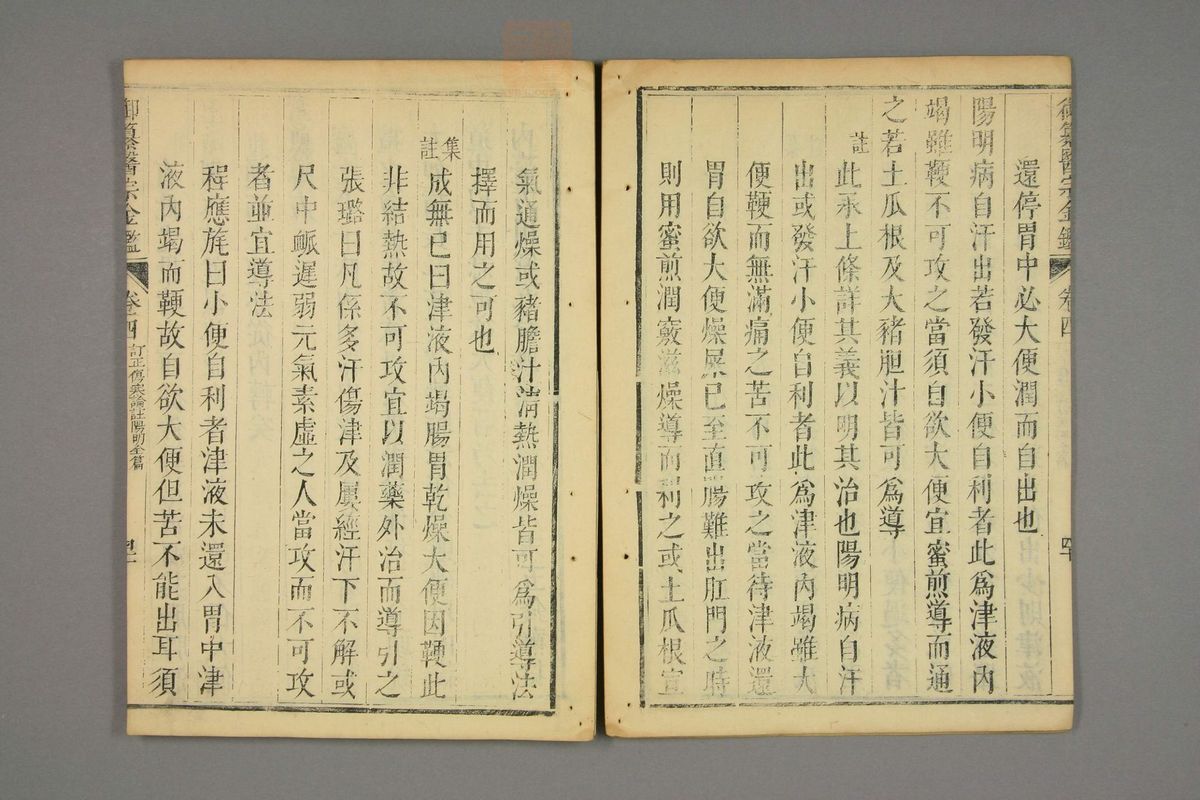 御纂醫宗金鑑 卷四 四十
還停胃中必大便潤而自出也
陽明病自汗出若發汗小便自利者此爲津液內
竭雖鞕不可攻之當須自欲大便宜蜜煎導而通
之若土瓜根及大豬胆汁皆可爲導
註此承上條詳其義以明其治也陽明病自汗
出或發汗小便自利者此爲津液內竭雖大
便鞕而無滿痛之苦不可攻之當待津液還
胃自欲大便燥屎已至直腸難出肛門之時
則用蜜煎潤竅滋燥導而利之或土瓜根宣
氣通燥或豬膽汁清熱潤燥皆可爲引導法
擇而用之可也
集註成無已曰津液內竭腸胃乾燥大便因鞕此
非結熱故不可攻宜以潤藥外治而導引之
張璐曰凡係多汗傷津及屢經汗下不解或
尺中脈遲弱元氣素虛之人當攻而不可攻
者並宜導法
程應旄曰小便自利者津液未還入胃中津
液內竭而鞕故自欲大便但苦不能出耳須
御纂醫宗金鑑 卷四 訂正傷寒論註陽明全篇